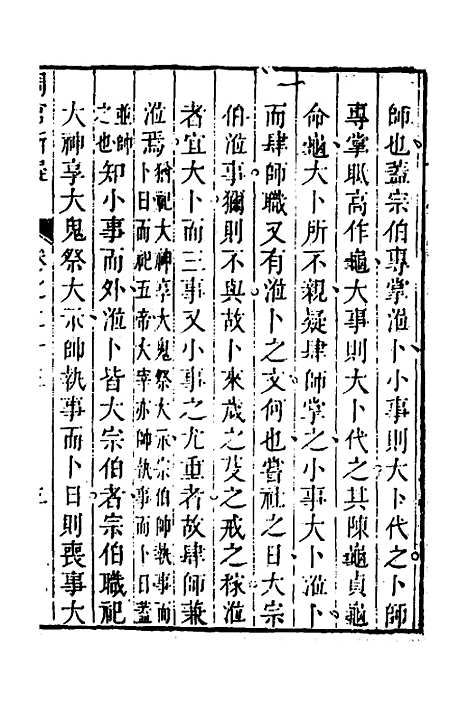 師也蓋宗伯專掌涖卜小事則大卜代之卜師
專掌眡高作龜大事則大卜代之其陳龜貞龜
命龜大卜所不親疑肆師掌之小事大卜涖卜
而肆師職又有涖卜之文何也嘗社之日大宗
伯涖事獮則不與故卜來歲之芟之戒之稼涖
者宜大卜而三事又小事之尤重者故肆師兼
涖焉猶祀大神享大鬼祭大示宗伯師執事而
卜日而祀五帝大宰亦師執事而卜日蓋
並師
之也知小事而外涖卜皆大宗伯者宗伯職祀
大神享大鬼祭大示師執事而卜日則喪事大
卷之二十三